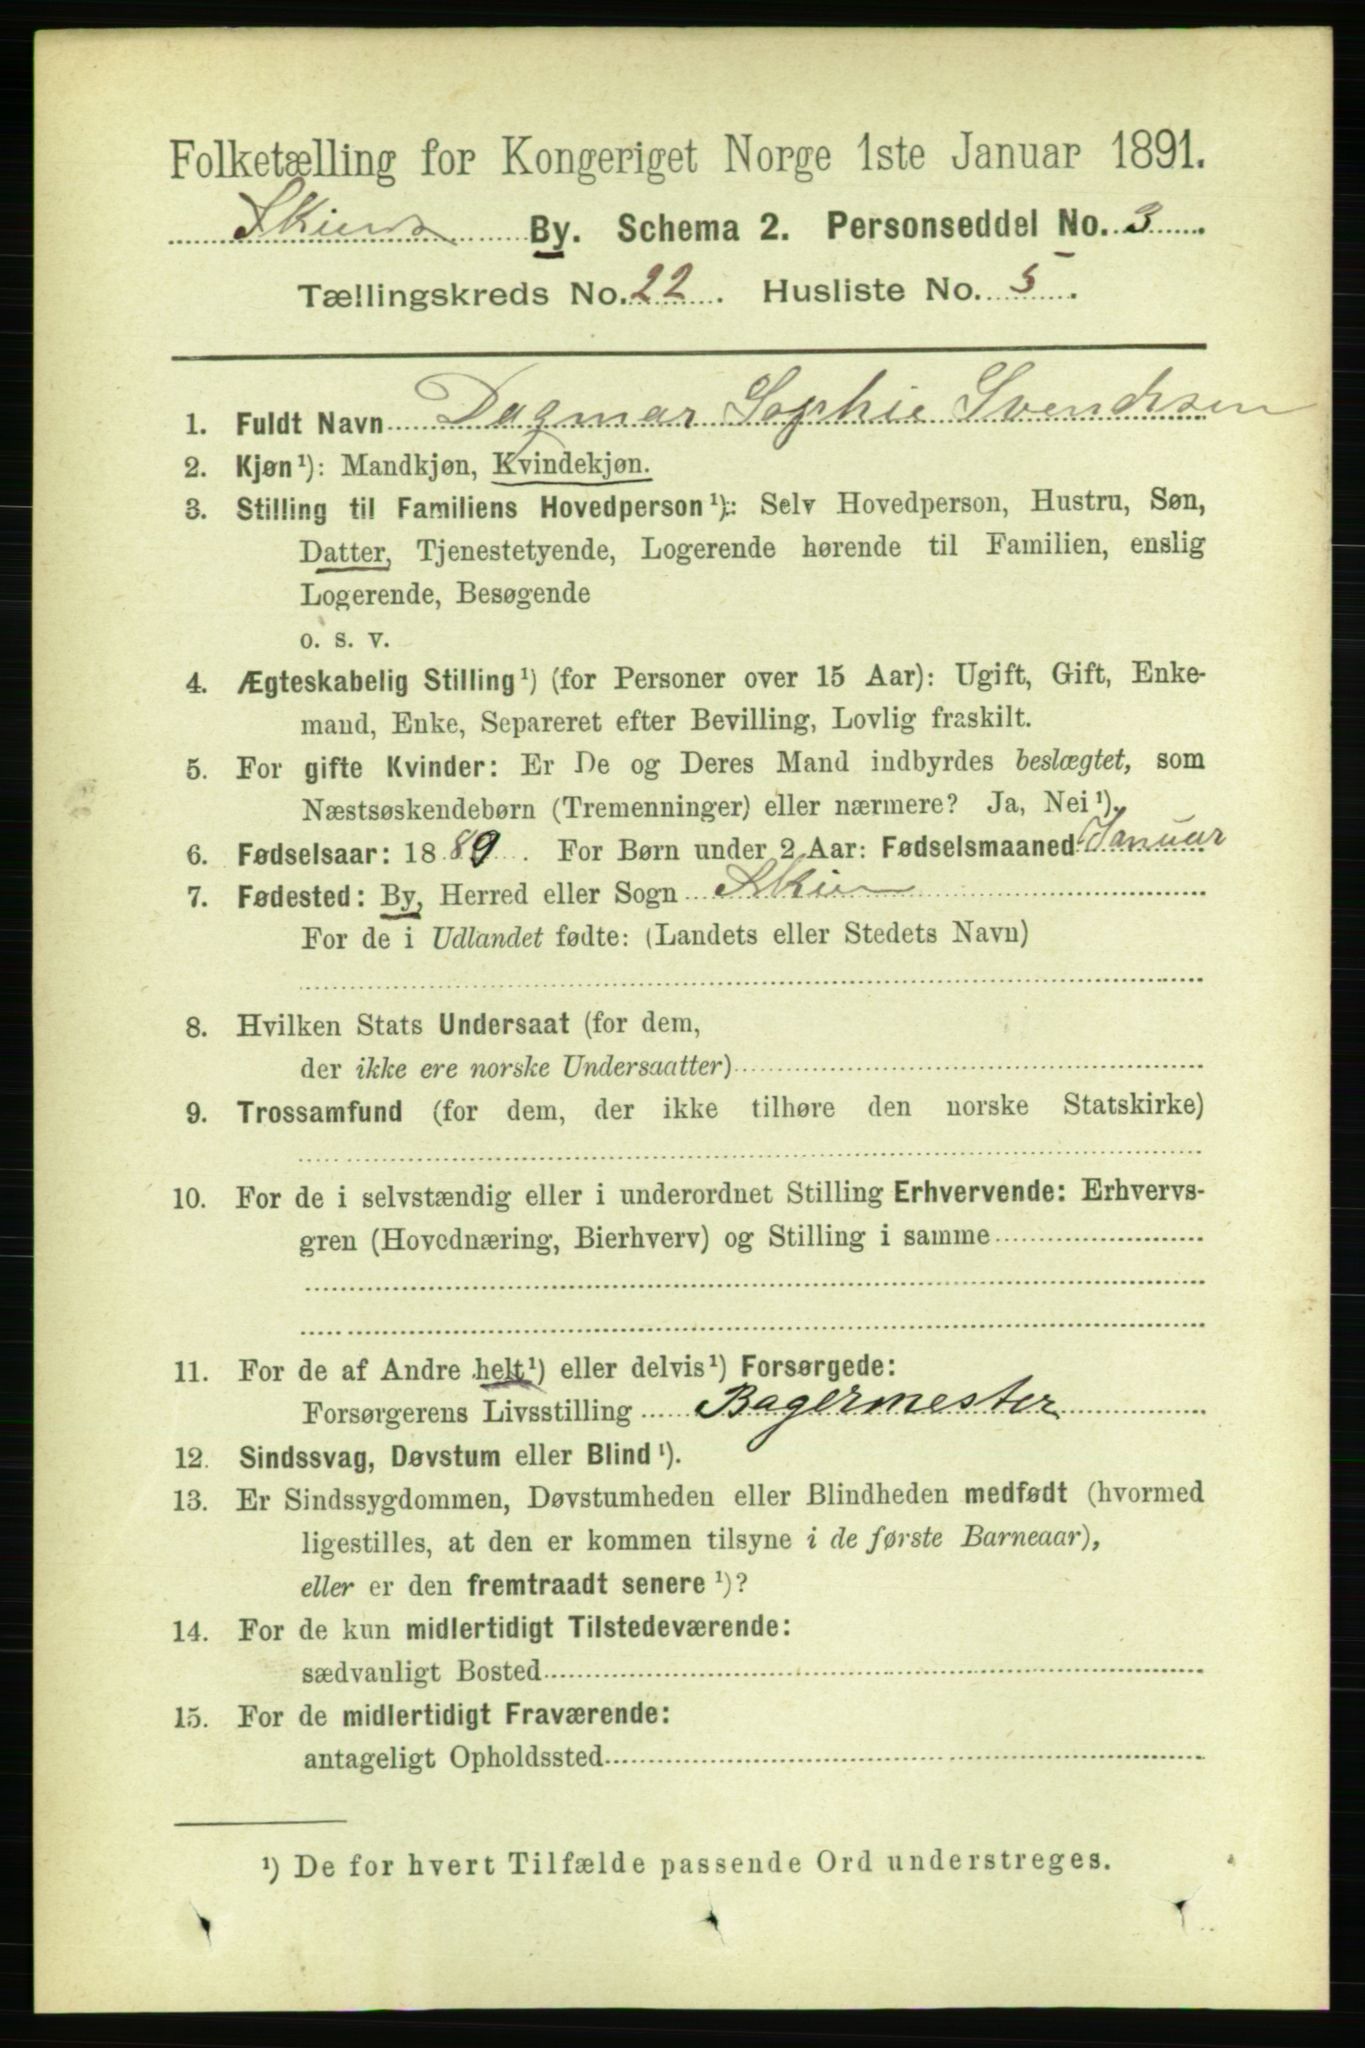 Folketælling for Kongeriget Norge 1ste Januar 1891.
Skiens By. Schema 2. Personseddel No. 3
Tællingskreds No. 22. Husliste No. 5.
1. Fuldt Navn Dagmar Sophie Svendsen
2. Kjøn¹): Mandkjøn, Kvindekjøn.
3. Stilling til Familiens Hovedperson¹): Selv Hovedperson, Hustru, Søn,
Datter, Tjenestetyende, Logerende hørende til Familien, enslig
Logerende, Besøgende
o. s. v.
4. Ægteskabelig Stilling¹) (for Personer over 15 Aar): Ugift, Gift, Enke-
mand, Enke, Separeret efter Bevilling, Lovlig fraskilt.
5. For gifte Kvinder: Er De og Deres Mand indbyrdes beslægtet, som
Næstsøskendebørn (Tremenninger) eller nærmere? Ja, Nei¹).
6. Fødselsaar: 1889. For Børn under 2 Aar: Fødselsmaaned Januar
7. Fødested: By, Herred eller Sogn Skien
For de i Udlandet fødte: (Landets eller Stedets Navn)
8. Hvilken Stats Undersaat (for dem,
der ikke ere norske Undersaatter)
9. Trossamfund (for dem, der ikke tilhøre den norske Statskirke)
10. For de i selvstændig eller i underordnet Stilling Erhvervende: Erhvervs-
gren (Hovednæring, Bierhverv) og Stilling i samme
11. For de af Andre helt¹) eller delvis¹) Forsørgede:
Forsørgerens Livsstilling Bagermester
12. Sindssvag, Døvstum eller Blind¹).
13. Er Sindssygdommen, Døvstumheden eller Blindheden medfødt (hvormed
ligestilles, at den er kommen tilsyne i de første Barneaar),
eller er den fremtraadt senere¹)?
14. For de kun midlertidigt Tilstedeværende:
sædvanligt Bosted
15. For de midlertidigt Fraværende:
antageligt Opholdssted
¹) De for hvert Tilfælde passende Ord understreges.